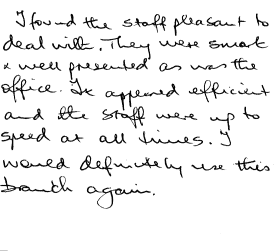 I found the staff pleasant to
deal with. They were smart
& well presented as was the
office. It appeared efficient
and the staff were up to
speed at all times. I
would definitely use this
branch again.